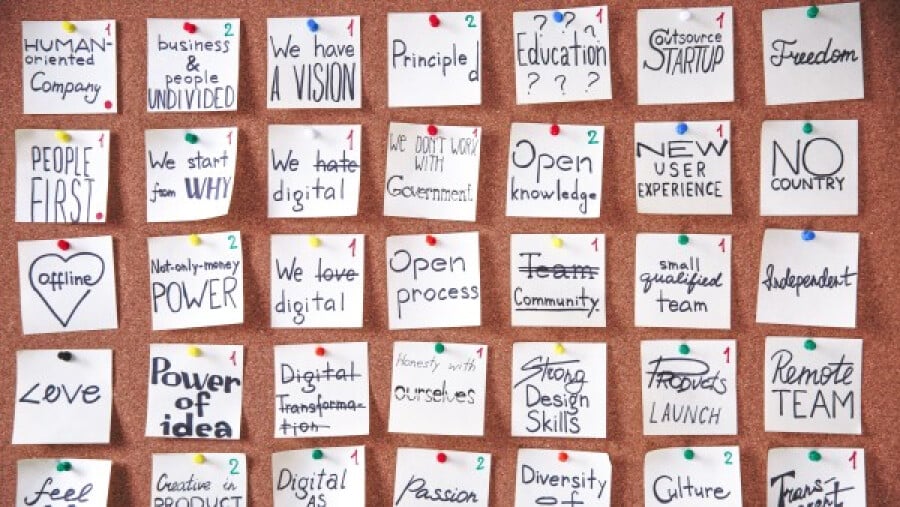 1
HUMAN-
oriented
Company
2
business
&
people
UNDIVIDED
1
We have
A VISION
2
Principled
1
? ? ?
Education
? ? ?
1
Outsource
STARTUP
Freedom
1
PEOPLE
FIRST
1
We start
from WHY
1
We hate
digital
1
We DON'T WORK
WITH
Government
2
Open
knowledge
1
NEW
USER
EXPERIENCE
NO
COUNTRY
offline
2
Not-only-money
POWER
1
We love
digital
Open
process
1
Team
Community
1
small
qualified
team
Independent
Love
1
Power
of
idea
Digital
Transforma-
tion
1
Honesty with
ourselves
Strong
Design
Skills
1
Products
LAUNCH
Remote
TEAM
feel
2
Creative in
PRODUCT
1
Digital
AS
2
Passion
Diversity
of
2
Culture
1
Trans-